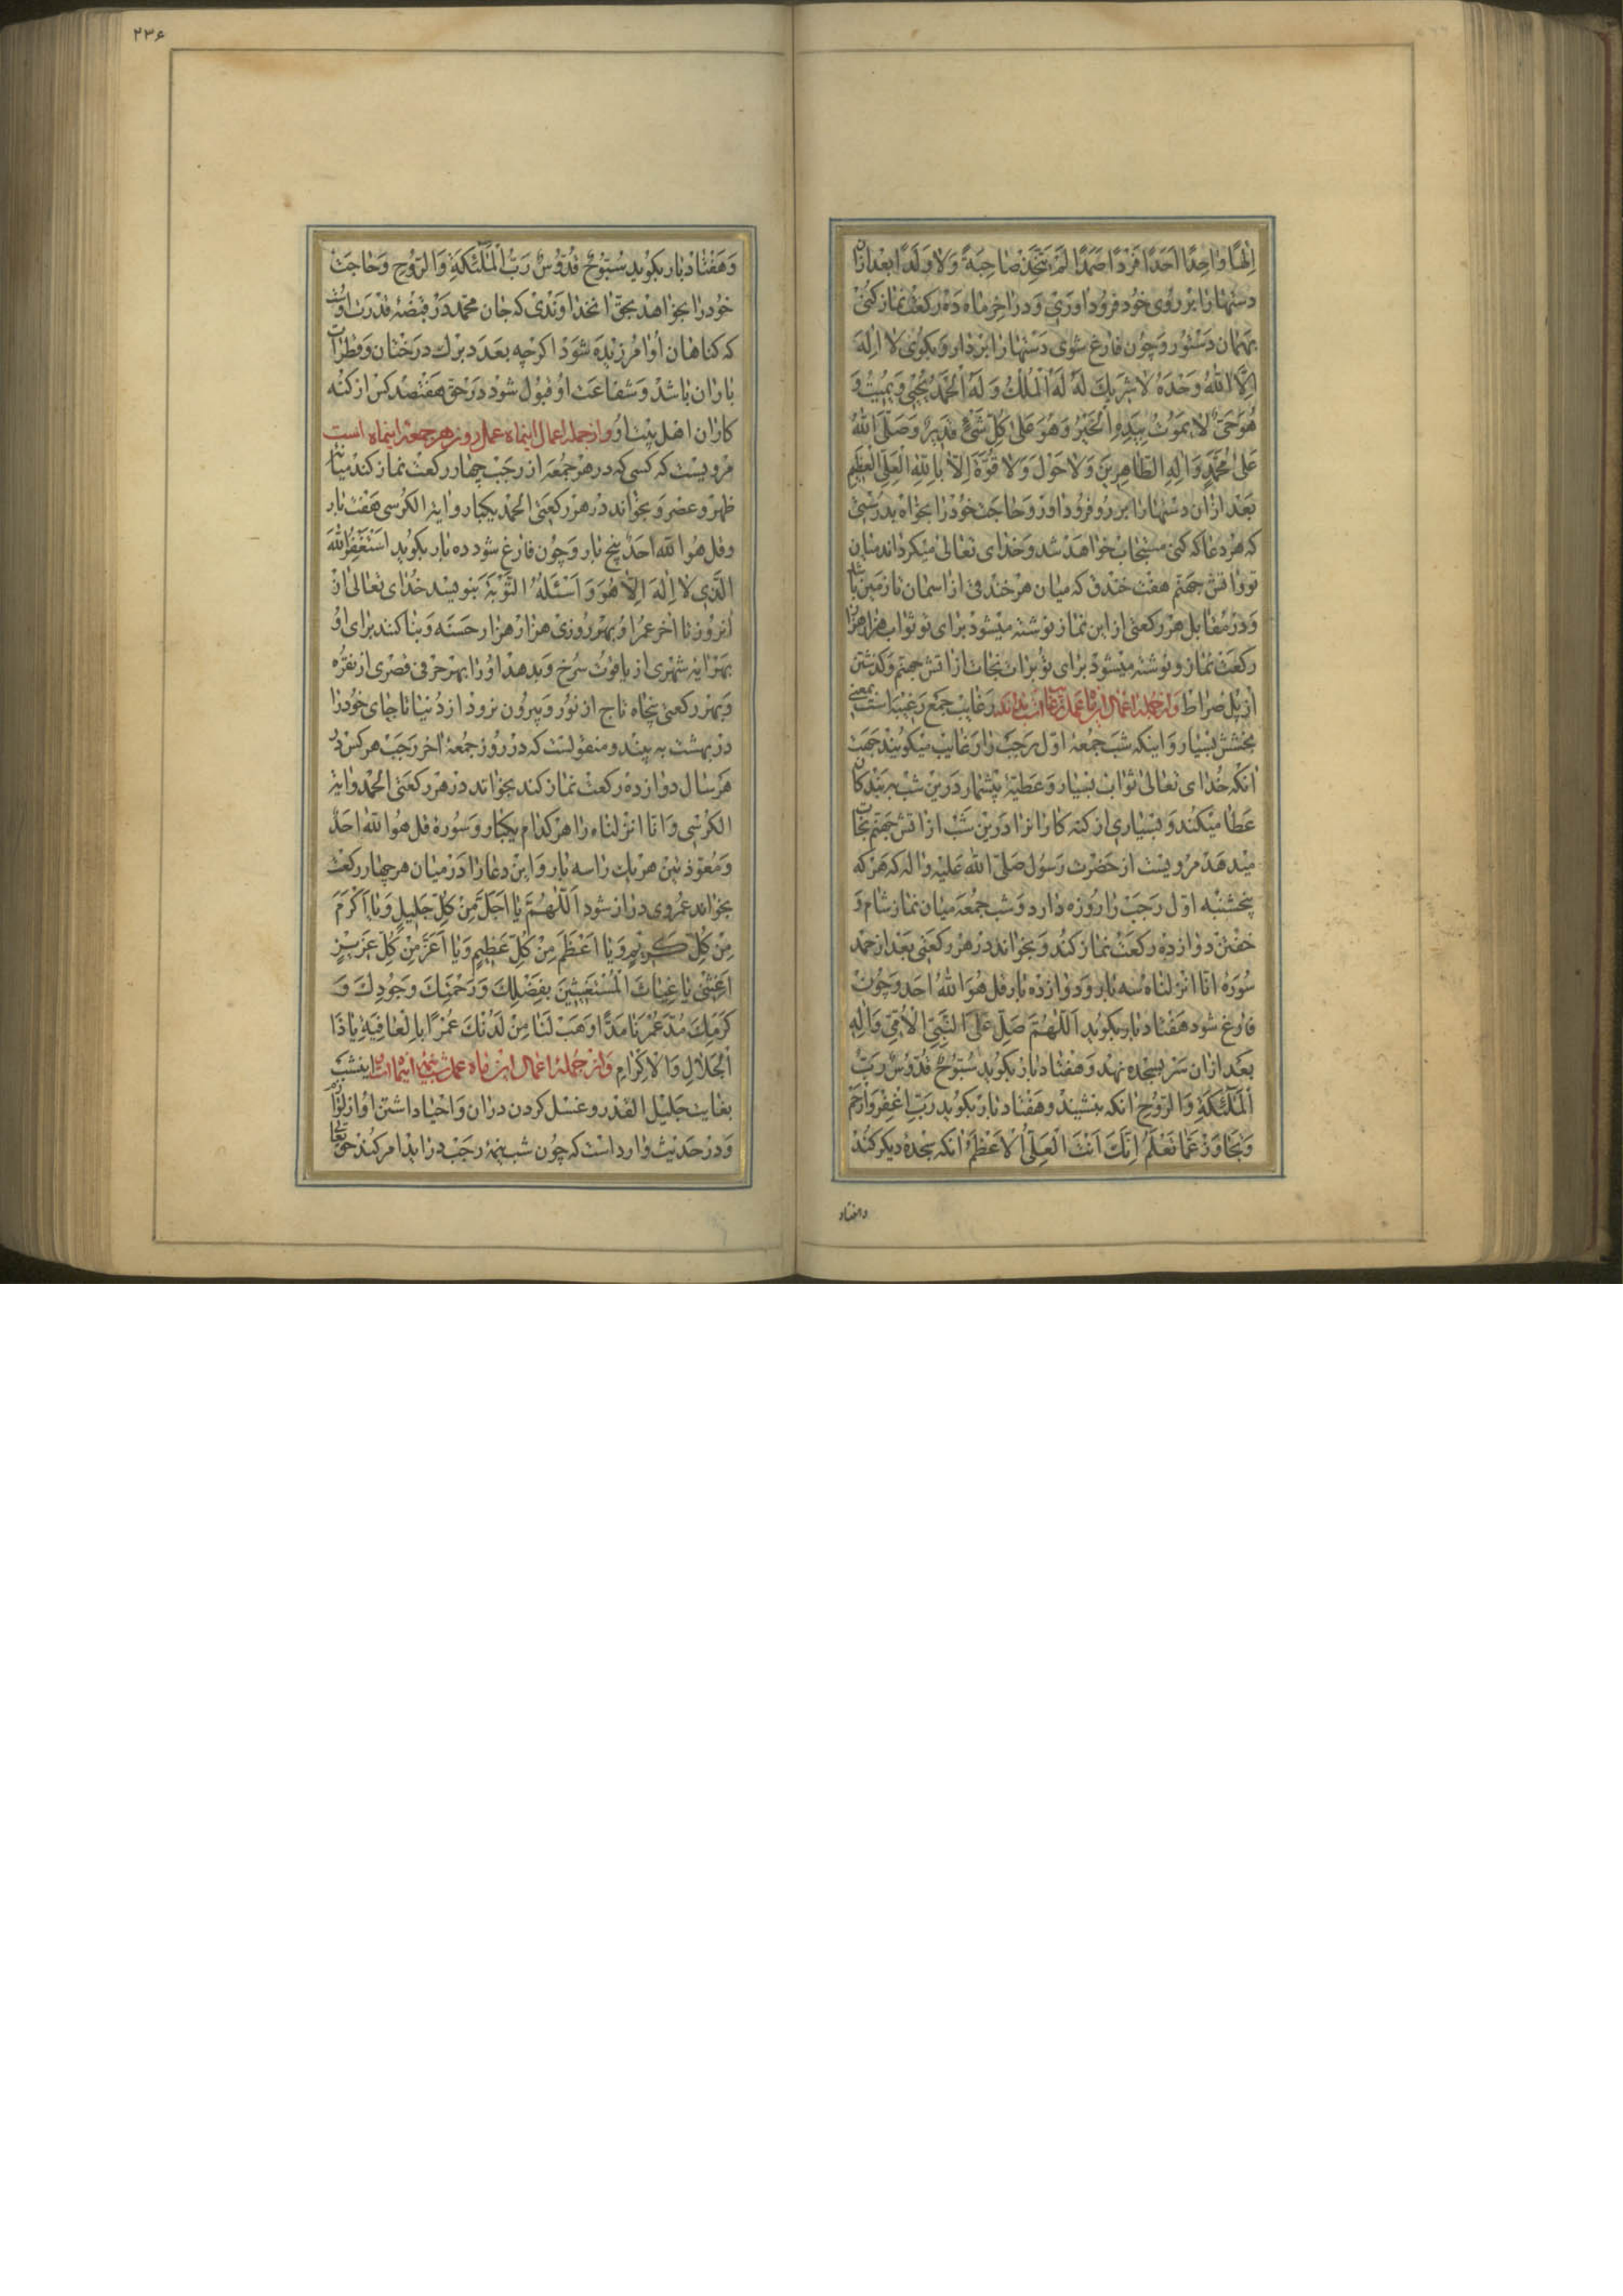 اِلٰهًا وٰاحِدًا اَحَدًا فَرْدًا صَمَدًا لَمْ يَتَّخِذْ صٰاحِبَةً وَلٰا وَلَدًا بعد ازان
دستهارا بر روی خود فرود اوری و در اخر ماه ده رکعت نماز کنی
بهمان دستور و چون فارغ شوی دستهارا بردار و بکوی لا اِلٰهَ
اِلَّا اللّٰهُ وَحْدَهُ لٰا شَرِيكَ لَهُ لَهُ الْمُلْكُ وَلَهُ الْحَمْدُ يُحْيِي وَيُمِيتُ وَ
هُوَ حَيٌّ لٰا يَمُوتُ بِيَدِهِ الْخَيْرُ وَهُوَ عَلٰى كُلِّ شَيْءٍ قَدِيرٌ وَصَلَّى اللّٰهُ
عَلٰى مُحَمَّدٍ وَاٰلِهِ الطّٰاهِرِينَ وَلٰا حَوْلَ وَلٰا قُوَّةَ اِلّٰا بِاللّٰهِ الْعَلِيِّ الْعَظِيمِ
بعد ازان دستهارا بر رو فرود اور و حاجت خود را بخواه بدرستی
که هر دعا که کنی مستجاب خواهد شد و خدای تعالی میکرداند میان
تو و اتش جهنم هفت خندق که میان هر خندقی از اسمان تا زمین باشد
و در مقابل هر رکعتی از این نماز نوشته میشود برای تو ثواب هزار هزار
رکعت نماز و نوشته میشود برای تو برات نجات از اتش جهنم و کذشتن
از پل صراط و از جملهٔ اعمال این ماه عمل رغایب بداند رغایب جمع رغیبا است بمعنی
بخشش بسیار و اینکه شب جمعهٔ اول رجب را رغایب میکویند جهت
انکه خدای تعالی ثواب بسیار و عطیهٔ بیشمار درین شب به بندکان
عطا میکند و بسیاری از کنه کارانرا درین شب از اتش جهنم نجات
میدهد مرویست از حضرت رسول صلی الله علیه واله که هر که
پنجشنبه اول رجب را روزه دارد و شب جمعه میان نماز شام و
خفتن دوازده رکعت نماز کند و بخواند در هر رکعتی بعد از حمد
سورهٔ انا انزلناه سه بار و دوازده بار قل هو الله احد و چون
فارغ شود هفتاد بار بکوید اَللّٰهُمَّ صَلِّ عَلَى النَّبِيِّ الْاُمِّيِّ وَاٰلِهِ
بعد ازان سر بسجده نهد و هفتاد بار بکوید سُبُّوحٌ قُدُّوسٌ رَبُّ
الْمَلٰٓئِكَةِ وَالرُّوحِ انکه بنشیند و هفتاد بار بکوید رَبِّ اغْفِرْ وَارْحَمْ
وَتَجٰاوَزْ عَمّٰا تَعْلَمُ اِنَّكَ اَنْتَ الْعَلِيُّ الْاَعْظَمُ انکه سجدهٔ دیکر کند
وهفتاد
۲۳۶
و هفتاد بار بکوید سُبُّوحٌ قُدُّوسٌ رَبُّ الْمَلٰٓئِكَةِ وَالرُّوحِ و حاجت
خود را بخواهد بحق انخداوندی که جان محمد در قبضهٔ قدرت اوست
که کناهان او امرزیده شود اکرچه بعدد برك درختان و قطرات
باران باشد و شفاعت او قبول شود در حق هفتصد کس از کنه
کاران اهل بیت او و از جمله اعمال اینماه عمل روز هر جمعهٔ اینماه است
مرویست که کسی که در هر جمعه از رجب چهار رکعت نماز کند میان
ظهر و عصر و بخواند در هر رکعتی الحمد یکبار و ایة الکرسی هفت بار
و قل هو الله احد پنج بار و چون فارغ شود ده بار بکوید اَسْتَغْفِرُ اللّٰهَ
الَّذِي لٰا اِلٰهَ اِلّٰا هُوَ وَاَسْئَلُهُ التَّوْبَةَ بنویسد خدای تعالی از
انروز تا اخر عمر او بهر روزی هزار هزار حسنه و بنا کند برای او
بهر ایه شهری از یاقوت سرخ و بدهد او را بهر حرفی قصری از نقره
و بهر رکعتی پنجاه تاج از نور و بیرون نرود از دنیا تا جای خود را
در بهشت به بیند و منقولست که در روز جمعهٔ اخر رجب هر کس در
هر سال دوازده رکعت نماز کند بخواند در هر رکعتی الحمد و ایة
الکرسی و انا انزلناه را هر کدام یکبار و سورهٔ قل هو الله احد
و معوذتین هر یك را سه بار و این دعا را در میان هر چهار رکعت
بخواند عمر وی دراز شود اَللّٰهُمَّ يٰا اَجَلَّ مِنْ كُلِّ جَلِيلٍ وَيٰا اَكْرَمَ
مِنْ كُلِّ كَرِيمٍ وَيٰا اَعْظَمَ مِنْ كُلِّ عَظِيمٍ وَيٰا اَعَزَّ مِنْ كُلِّ عَزِيزٍ
اَغِثْنِي يٰا غِيٰاثَ الْمُسْتَغِيثِينَ بِفَضْلِكَ وَرَحْمَتِكَ وَجُودِكَ وَ
كَرَمِكَ مُدَّ عُمْرَنٰا مَدًّا وَهَبْ لَنٰا مِنْ لَدُنْكَ عُمْرًا بِالْعٰافِيَةِ يٰا ذَا
الْجَلٰالِ وَالْاِكْرٰامِ و از جملهٔ اعمال این ماه عمل شب نیمهٔ اینماه است اینشب
بغایت جلیل القدر و غسل کردن دران و احیا داشتن او از لوازم
و در حدیث وارد است که چون شب نیمهٔ رجب دراید امر کند حق تعالی